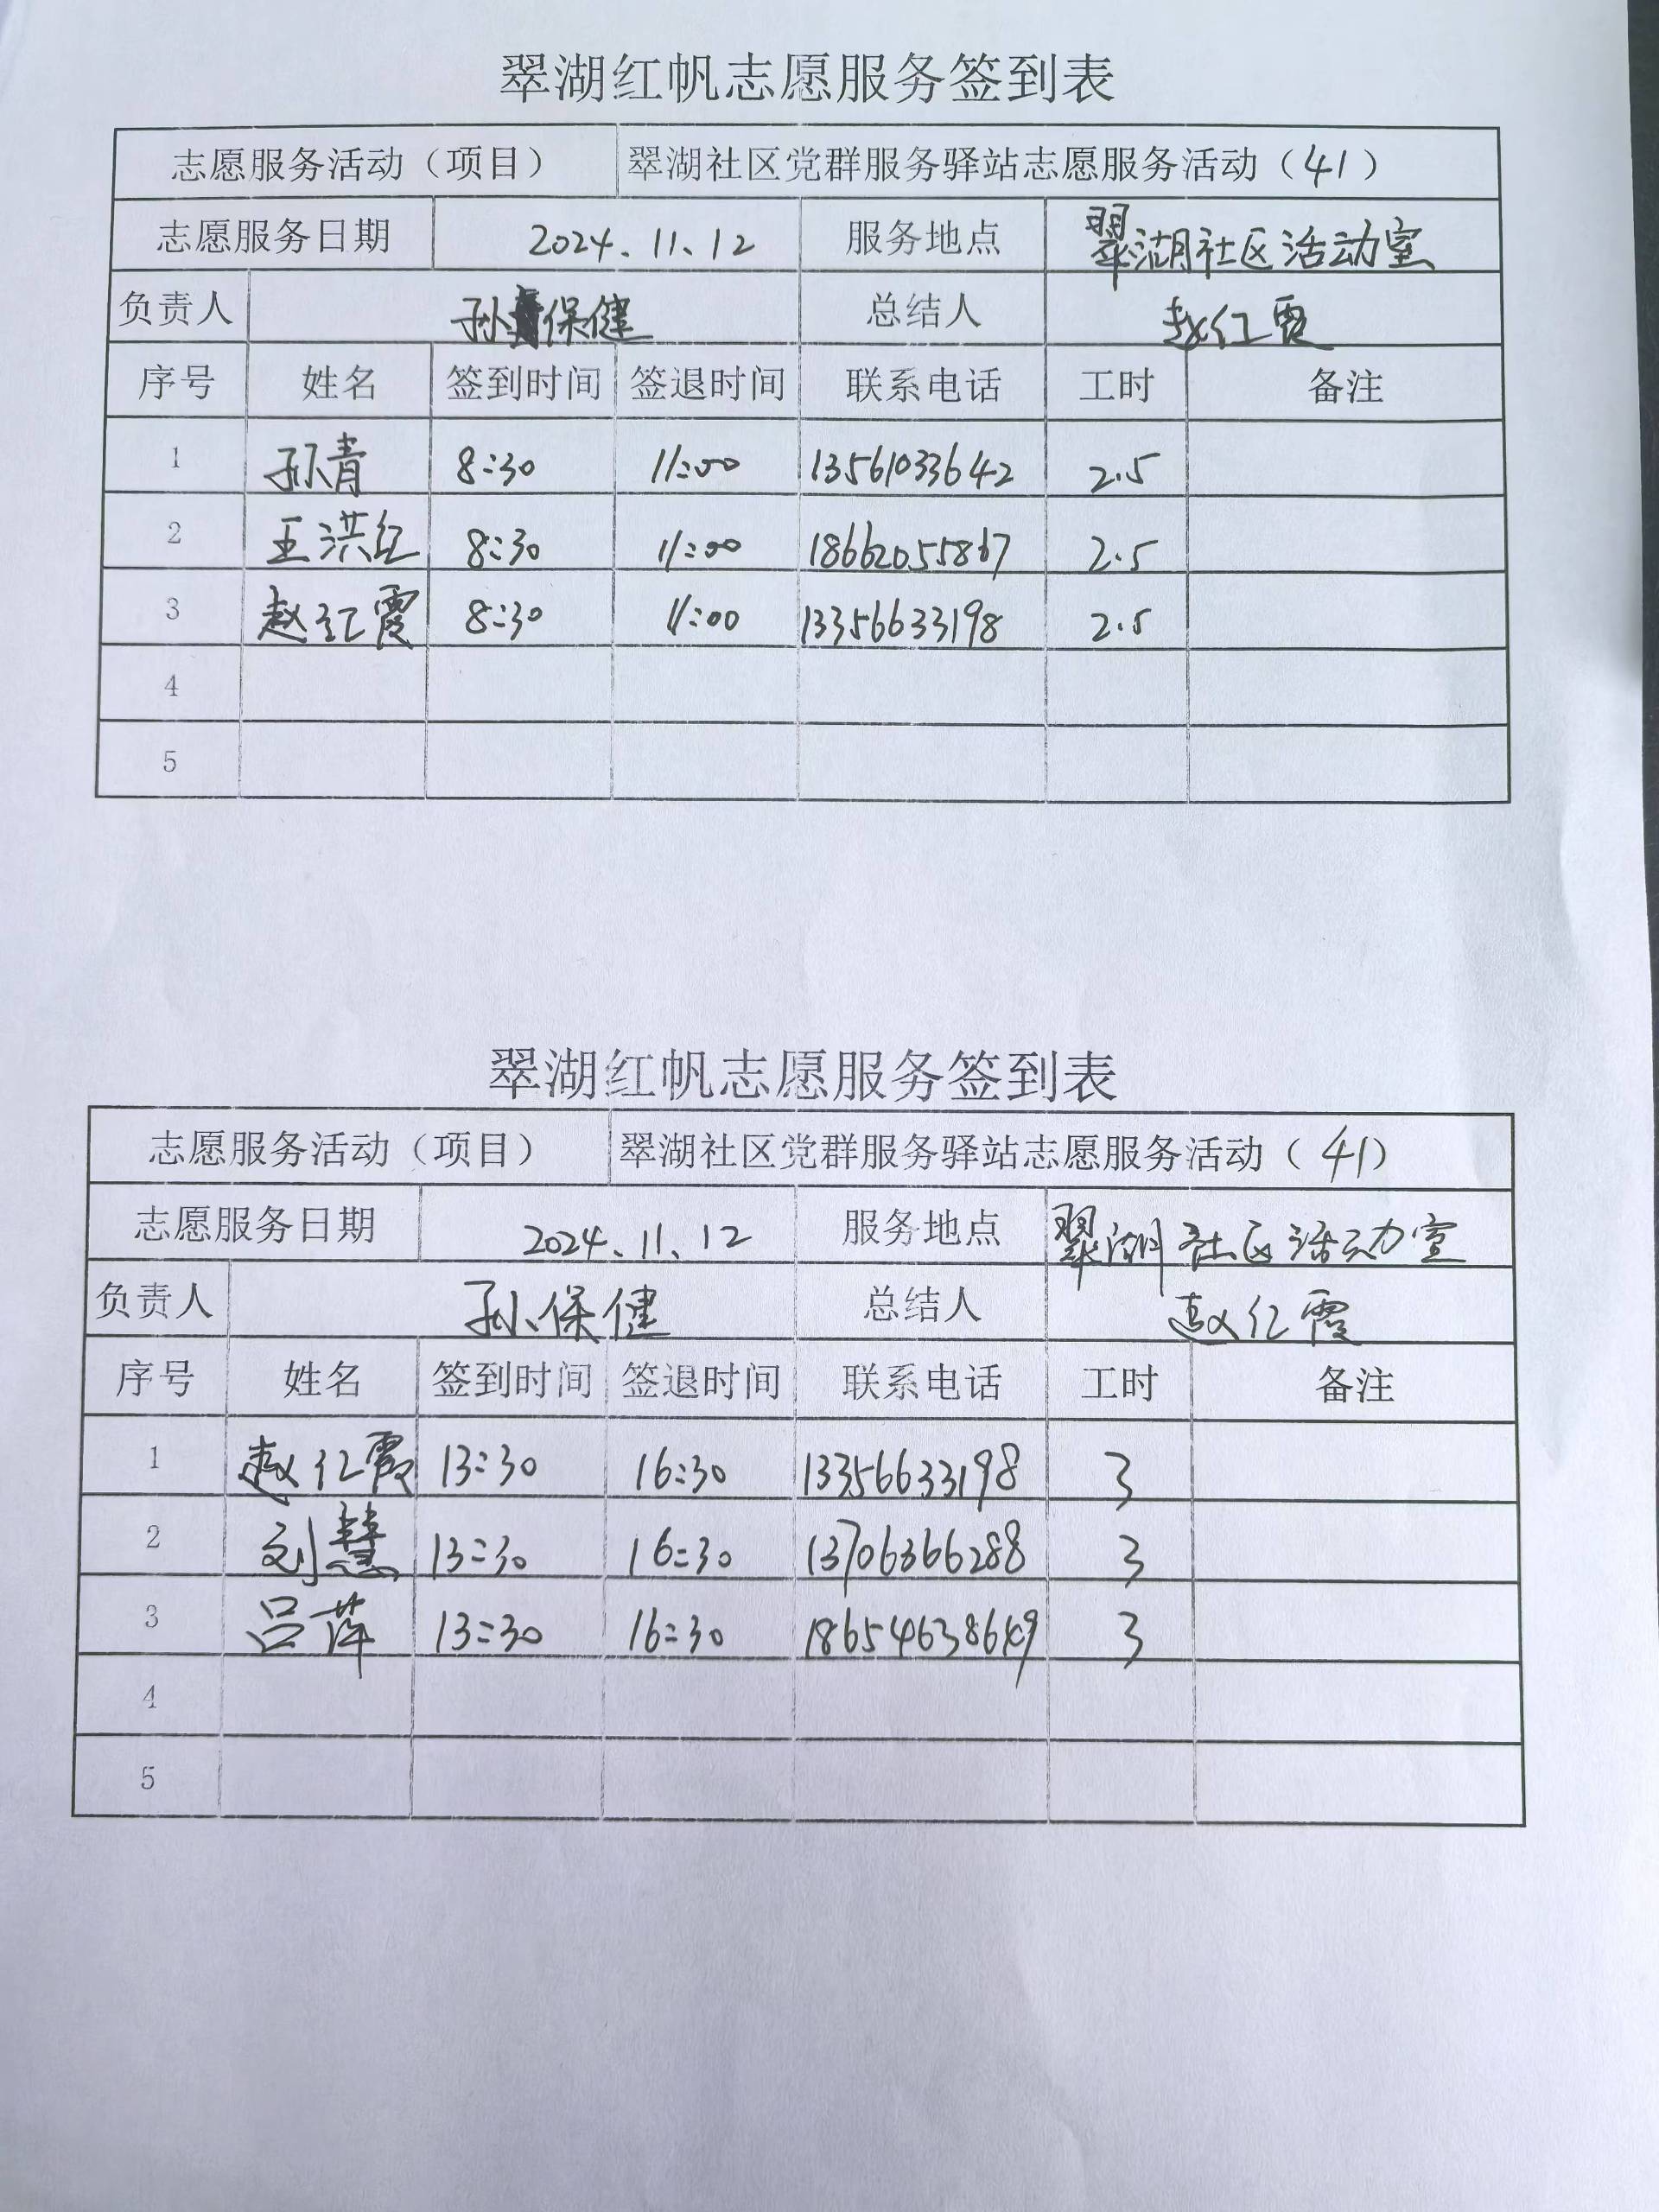 翠湖红帆志愿服务签到表
志愿服务活动（项目） 翠湖社区党群服务驿站志愿服务活动（41）
志愿服务日期 2024、11、12 服务地点 翠湖社区活动室
负责人 孙保健 总结人 赵红霞
序号 姓名 签到时间 签退时间 联系电话 工时 备注
1 孙青 8:30 11:00 13561033642 2.5
2 王洪红 8:30 11:00 18662055867 2.5
3 赵红霞 8:30 11:00 13356633198 2.5
4
5
翠湖红帆志愿服务签到表
志愿服务活动（项目） 翠湖社区党群服务驿站志愿服务活动（41）
志愿服务日期 2024、11、12 服务地点 翠湖社区活动室
负责人 孙保健 总结人 赵红霞
序号 姓名 签到时间 签退时间 联系电话 工时 备注
1 赵红霞 13:30 16:30 13356633198 3
2 刘慧 13:30 16:30 13706366288 3
3 吕萍 13:30 16:30 3
4
5